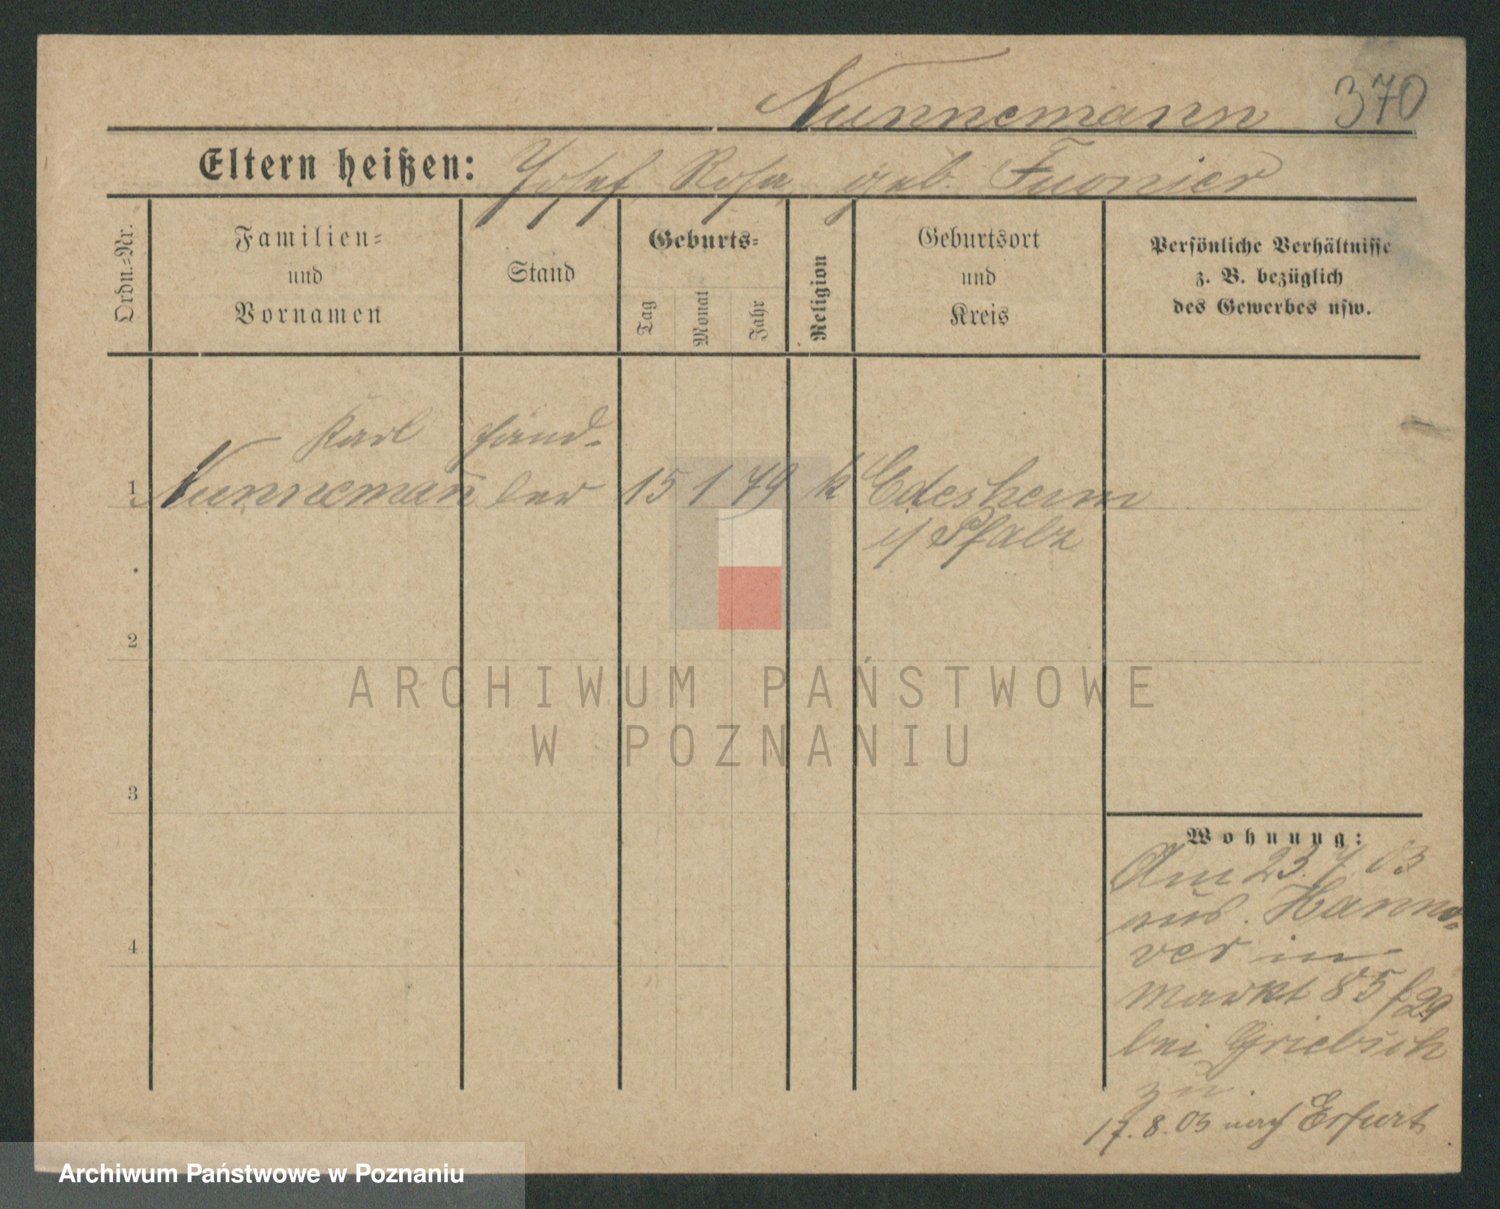 Nunnemann 370
Eltern heißen: Josef, Rosa, geb. Fuonier
Ordn.=Nr.
Familien=
und
Vornamen
Stand
Geburts=
Tag
Monat
Jahr
Religion
Geburtsort
und
Kreis
Persönliche Verhältnisse
z. B. bezüglich
des Gewerbes usw.
Karl Händ-
1 Nunnemann̄ ler 15 1 79 k Edesheim
i/ Pfalz
2
3
4
Wohnung:
Am 23.7.03
aus. Hanno-
ver in
Markt 85 f 29
bei Griebsch
zu.
17.8.03 nach Erfurt
ARCHIWUM PAŃSTWOWE
W POZNANIU
Archiwum Państwowe w Poznaniu